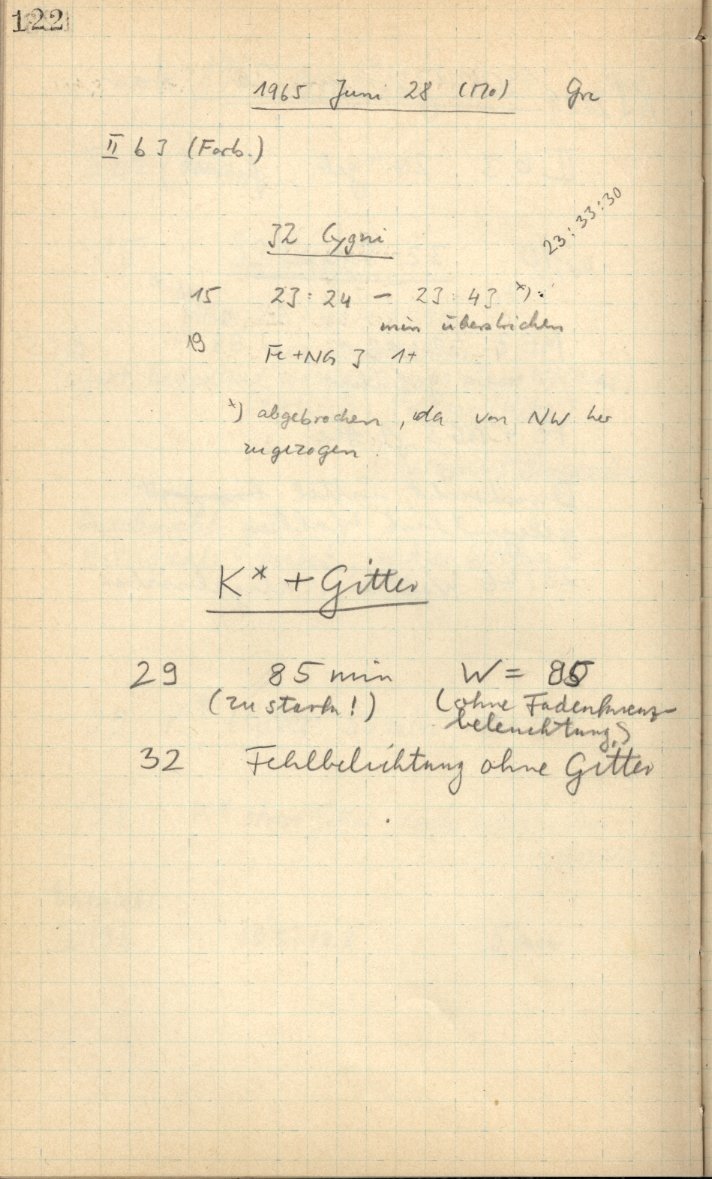 122
1965 Juni 28 (Mo) Grz
II b 3 (Farb.)
23:33:30
32 Cygni
15 23:24 – 23:43 *)
min überstrichen
19 Fe+NG 3 1+
*) abgebrochen, da von NW her
zugezogen.
K* + Gitter
29 85 min W = 85
(zu stark!) (ohne Fadenkreuz-
beleuchtung)
32 Fehlbelichtung ohne Gitter